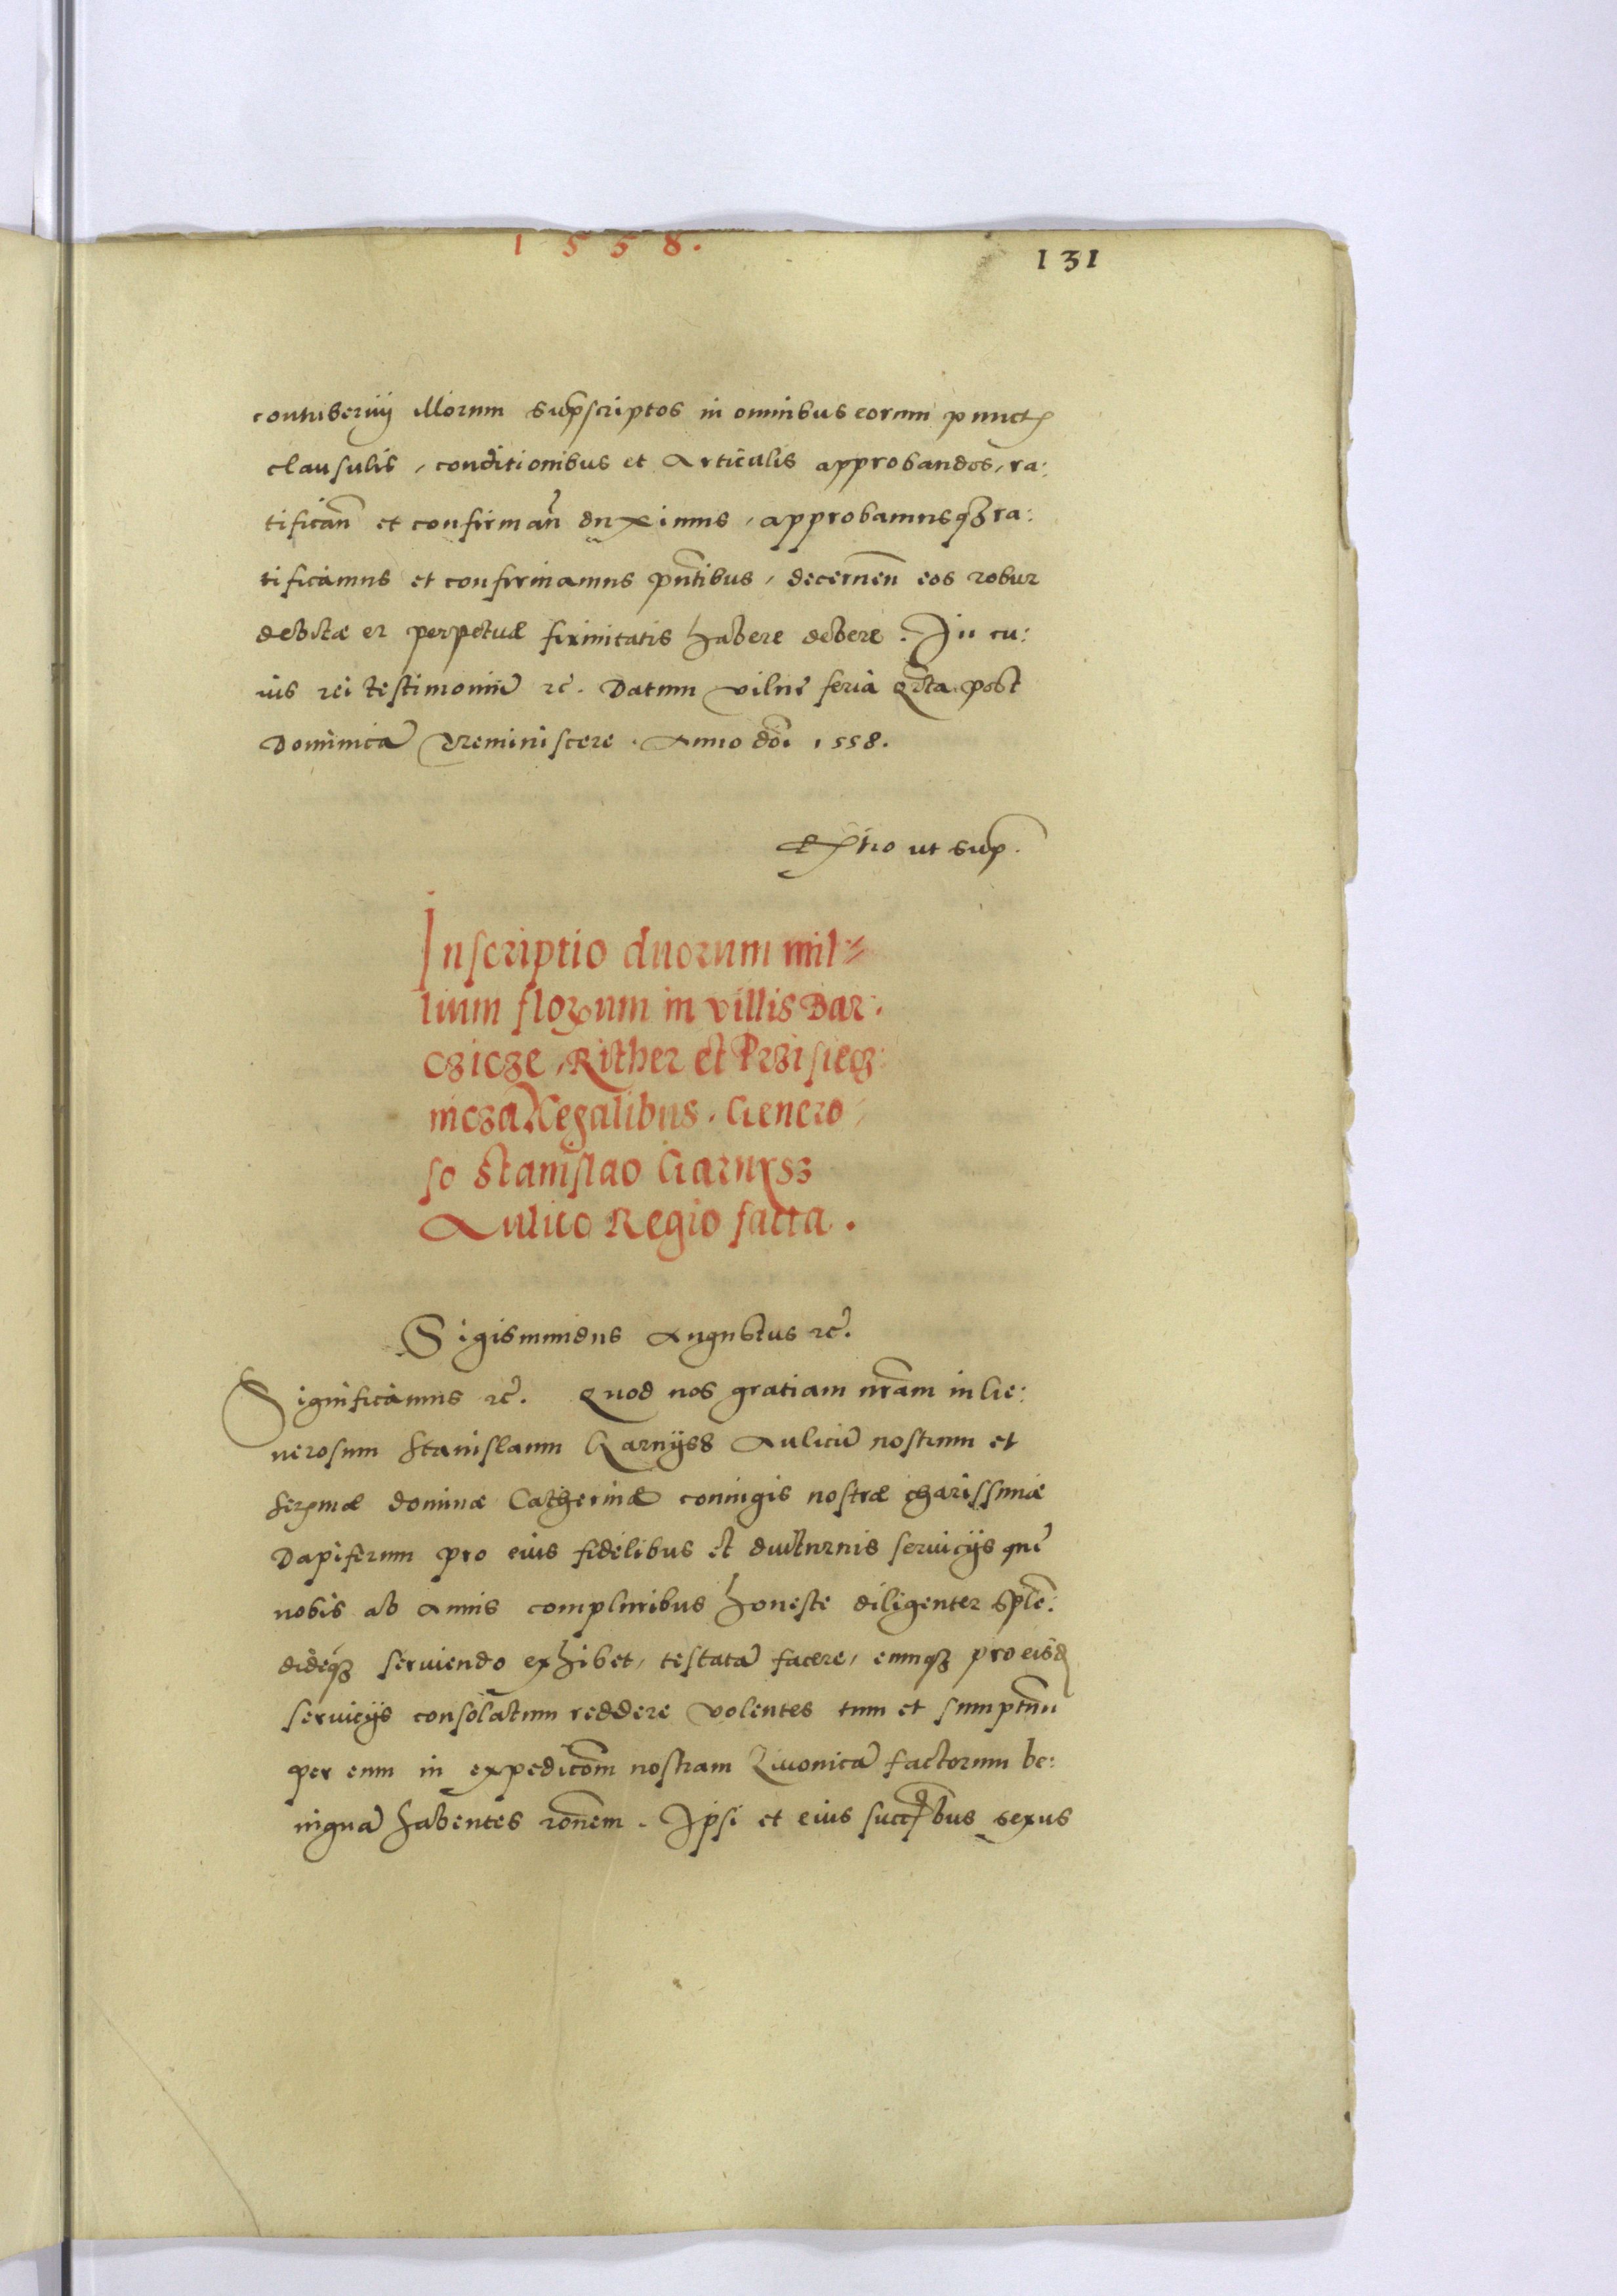 1558.
131
contubernij illorum sup̃scriptos in omnibus eorum punctꝭ
clausulis, conditionibus et Articulis approbandos, ra:
tifican̄ et confirman̄ duximus, approbamusqꝫ ra:
tificamus et confirmamus pn̄tibus, decernen̄ eos robur
debitæ et perpetuæ firmitatis habere debere. In cu:
ius rei testimoniū ꝛc̄. Datum Vilnę feria Qr̄ta post
Dominicā Reminiscere. Anno dn̄i 1558.
Rxtio ut sup̃.
Inscriptio duorum mil=
lium floꝛum in villis Bar:
czicze, Rither et Przisiecz:
nicza Regalibus. Genero=
so Stanislao Garnysz
Aulico Regio facta.
Sigismundus Augustus ꝛc̄.
Significamus ꝛc̄. Quod nos gratiam nr̄am in Ge:
nerosum Stanislaum Karnijss Aulicū nostrum et
Serꝫmæ dominæ Catherinæ coniugis nostræ charissimæ
Dapiferum pro eius fidelibus et diuturnis seruicijs quę
nobis ab Annis compluribus honeste diligenter splē:
dideqꝫ seruiendo exhibet, testatā facere, eumqꝫ pro eisd̄
seruicijs consolatum reddere volentes tum et sumptuū
per eum in expedicōm nostram Liuonicā factorum be:
nignā habentes rōnem. Ipsi et eius succꝭbus sexus